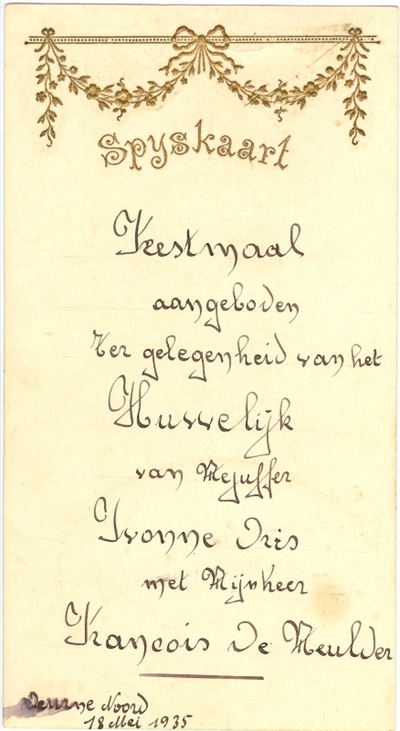 Spyskaart
Feestmaal
aangeboden
ter gelegenheid van het
Huwelijk
van Mejuffer
Yvonne Dris
met Mijnheer
François De Meulder
Deurne Noord
18 Mei 1935